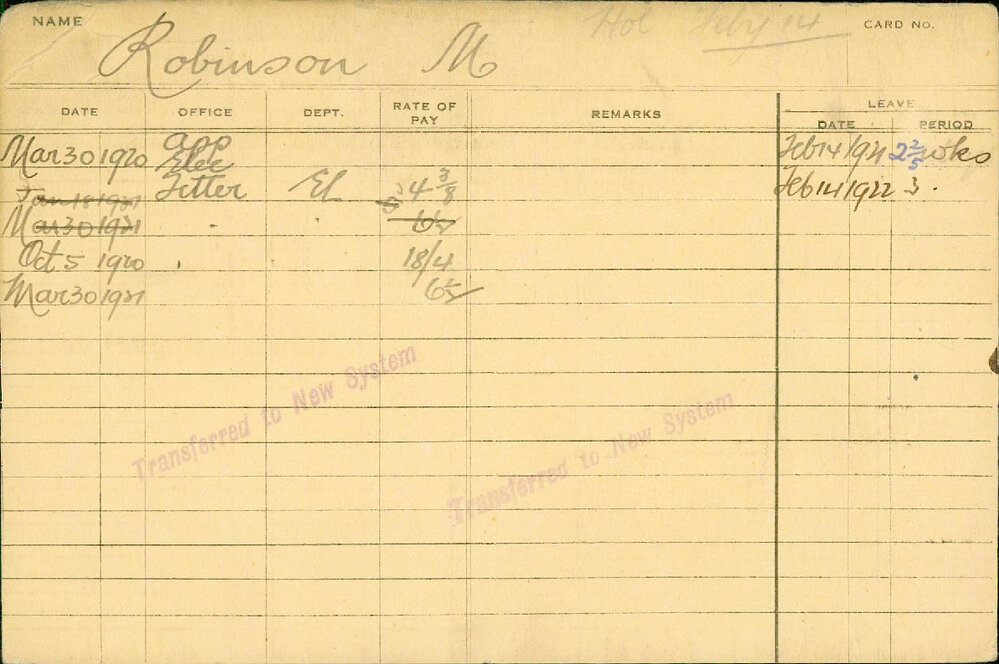 NAME
Hol Feby 14
CARD No.
Robinson M
DATE OFFICE DEPT. RATE OF PAY REMARKS LEAVE
DATE PERIOD
Mar 30 1920 app Elec Feb 14 1921 2 2/5 wks
Jan 18 1921 Fitter El 4 3/8 Feb 14 1922 3 .
Mar 30 1921 .
Oct 5 1920 . 18/4
Mar 30 1921
Transferred to New System
Transferred to New System